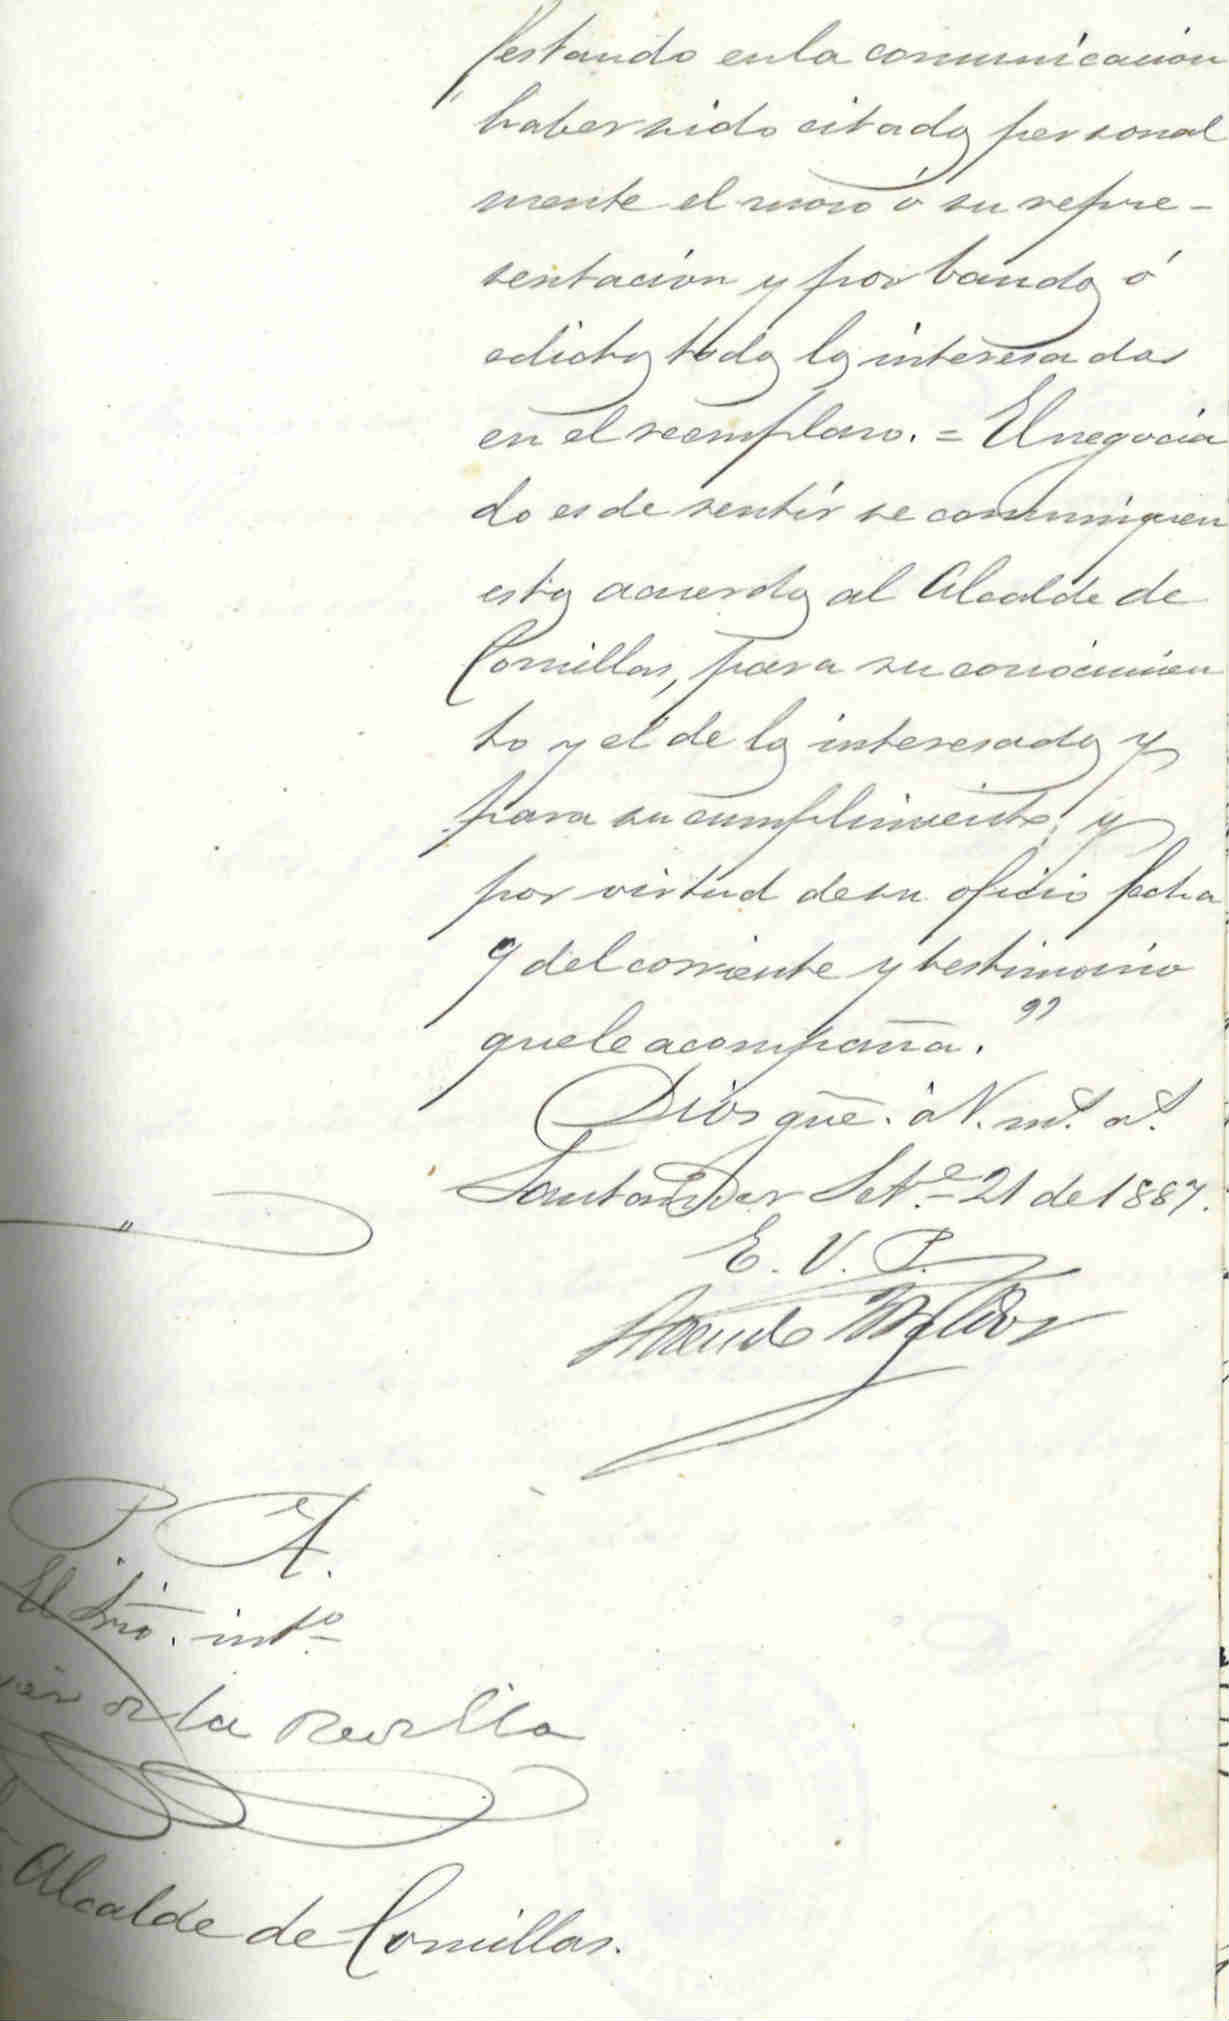 festando en la comunicacion
haber sido citados personal
mente el mozo ó su repre-
sentacion y por bandos ó
edictos todos los interesados
en el reemplazo. = El negocia
do es de sentir se comuniquen
estos acuerdos al Alcalde de
Comillas, para su conocimien
to y el de los interesados y
para su cumplimiento, y
por virtud de su oficio fecha
9 del corriente y testimonio
que le acompaña."
Dios gũe. á V. ms. as.
Santander Set.e 21 de 1887.
E. V. P.
P. A.
El Srio. int.o
de la Revilla
Alcalde de Comillas.